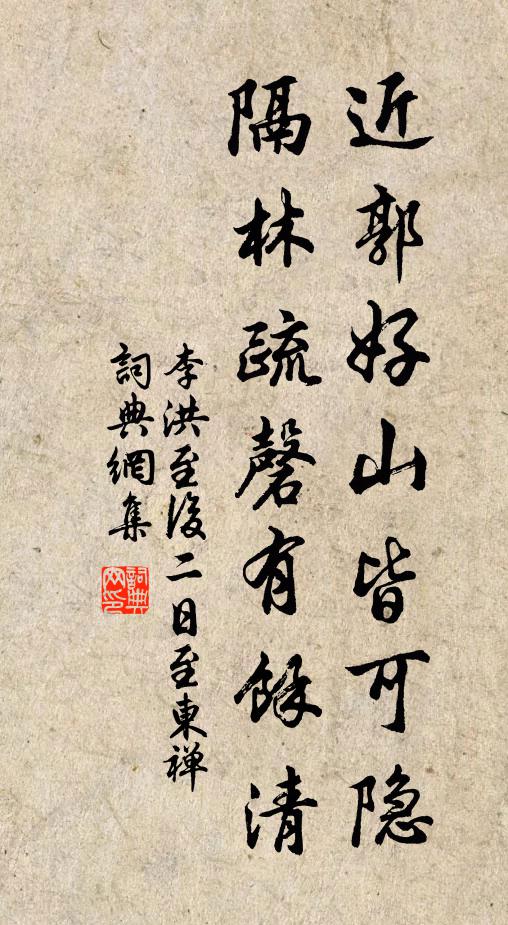 近郭好山皆可隐
隔林疏磬有餘清
李洪至後二日至東禅
詞典網集
詞典網印